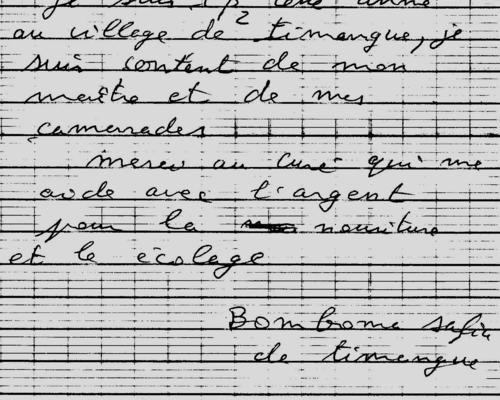 je suis cp2 cette année
au village de timangue, je
suis content de mon
maître et de mes
camarades
merci au curé qui me
aide avec l'argent
pour la nouriture
et le écolage
Bombome
de timangue